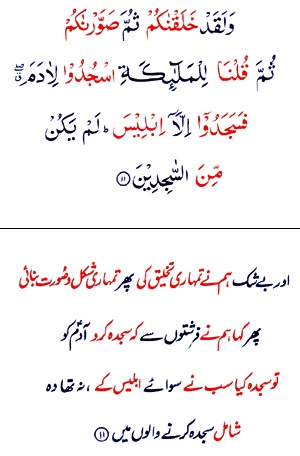 وَلَقَدْ خَلَقْنٰكُمْ ثُمَّ صَوَّرْنٰكُمْ
ثُمَّ قُلْنَا لِلْمَلٰٓئِكَةِ اسْجُدُوْا لِاٰدَمَ ۖق
فَسَجَدُوْٓا اِلَّآ اِبْلِيْسَ ؕ لَمْ يَكُنْ
مِّنَ السّٰجِدِيْنَ ۝۱۱
اور بے شک ہم نے تمہاری تخلیق کی پھر تمہاری شکل و صورت بنائی
پھر کہا ہم نے فرشتوں سے کہ سجدہ کرو آدمؑ کو
تو سجدہ کیا سب نے سوائے ابلیس کے ، نہ تھا وہ
شامل سجدہ کرنے والوں میں ۝۱۱